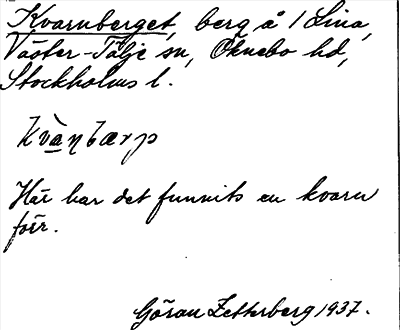 Kvarnberget, berg å 1 Lina,
Väster-Tälje sn, Öknebo hd,
Stockholms l.
kvàn bærp
Här har det funnits en kvarn
förr.
Göran Zetterberg 1937.